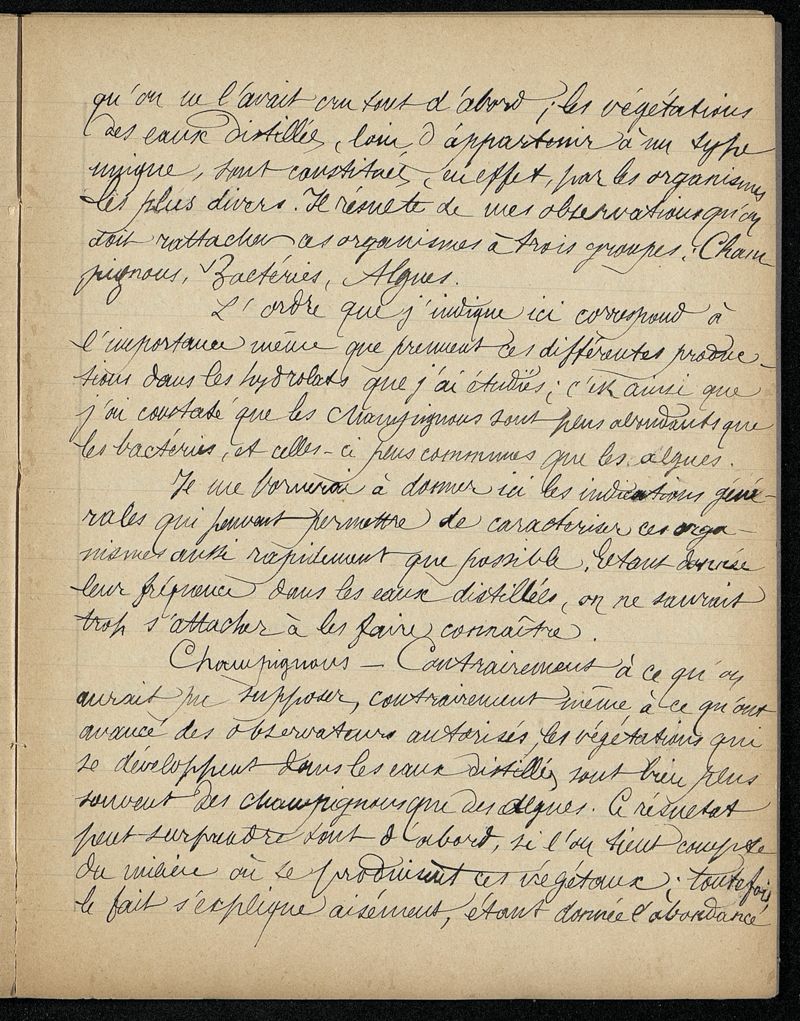 qu'on ne l'avait cru tout d'abord ; les végétations
des eaux distillées, loin d'appartenir à un type
unique, sont constituées, en effet, par les organismes
les plus divers. Il résulte de mes observations qu'on
doit rattacher ces organismes à trois groupes : Cham-
pignons, Bactéries, Algues.
L'ordre que j'indique ici correspond à
l'importance même que prennent ces différentes produc-
tions dans les hydrolats que j'ai étudiés ; c'est ainsi que
j'ai constaté que les champignons sont plus abondants que
les bactéries, et celles-ci plus communes que les algues.
Je me bornerai à donner ici les indications géné-
rales qui peuvent permettre de caractériser ces orga-
nismes aussi rapidement que possible. Etant donnée
leur fréquence dans les eaux distillées, on ne saurait
trop s'attacher à les faire connaître.
Champignons — Contrairement à ce qu'on
aurait pu supposer, contrairement même à ce qu'ont
avancé des observateurs autorisés, les végétations qui
se développent dans les eaux distillées sont bien plus
souvent des champignons que des algues. Ce résultat
peut surprendre tout d'abord, si l'on tient compte
du milieu où se produisent ces végétaux ; toutefois,
le fait s'explique aisément, étant donnée l'abondance